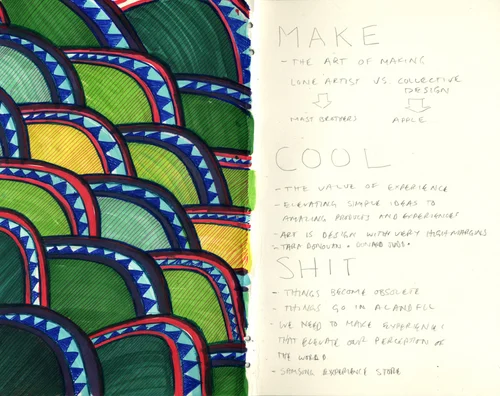 MAKE
- THE ART OF MAKING
LONE ARTIST VS COLLECTIVE
DESIGN
MAST BROTHERS APPLE
COOL
- THE VALUE OF EXPERIENCE
- ELEVATING SIMPLE IDEAS TO
AMAZING PRODUCTS AND EXPERIENCES
- ART IS DESIGN WITH VERY HIGH MARGINS
- TARA DONOVAN • DONALD JUDD •
SHIT
- THINGS BECOME OBSOLETE
- THINGS GO IN A LANDFILL
- WE NEED TO MAKE EXPERIENCES
THAT ELEVATE OUR PERCEPTION OF
THE WORLD
- SAMSUNG EXPERIENCE STORE